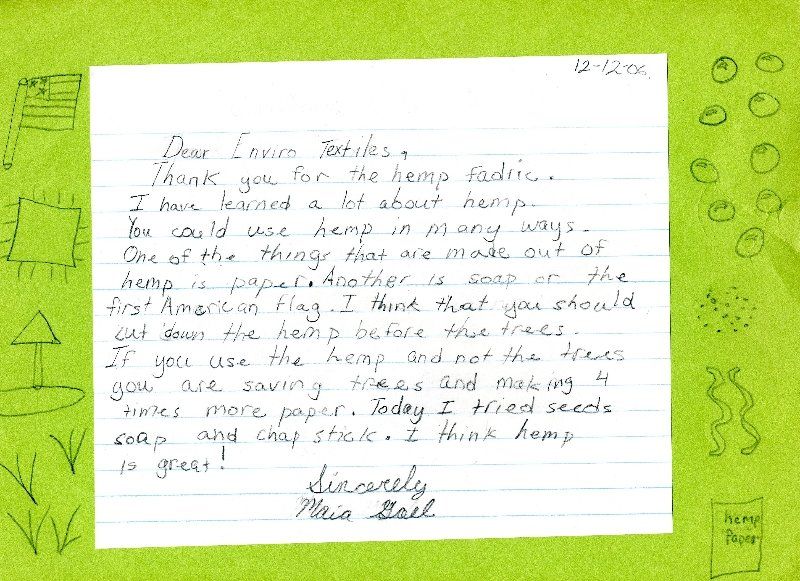 12-12-06
Dear Enviro Textiles,
Thank you for the hemp fadric.
I have learned a lot about hemp.
You could use hemp in many ways.
One of the things that are made out of
hemp is paper. Another is soap or the
first American flag. I think that you should
cut down the hemp before the trees.
If you use the hemp and not the trees
you are saving trees and making 4
times more paper. Today I tried seeds
soap and chap stick. I think hemp
is great!
Sincerely
Maia
hemp
Paper